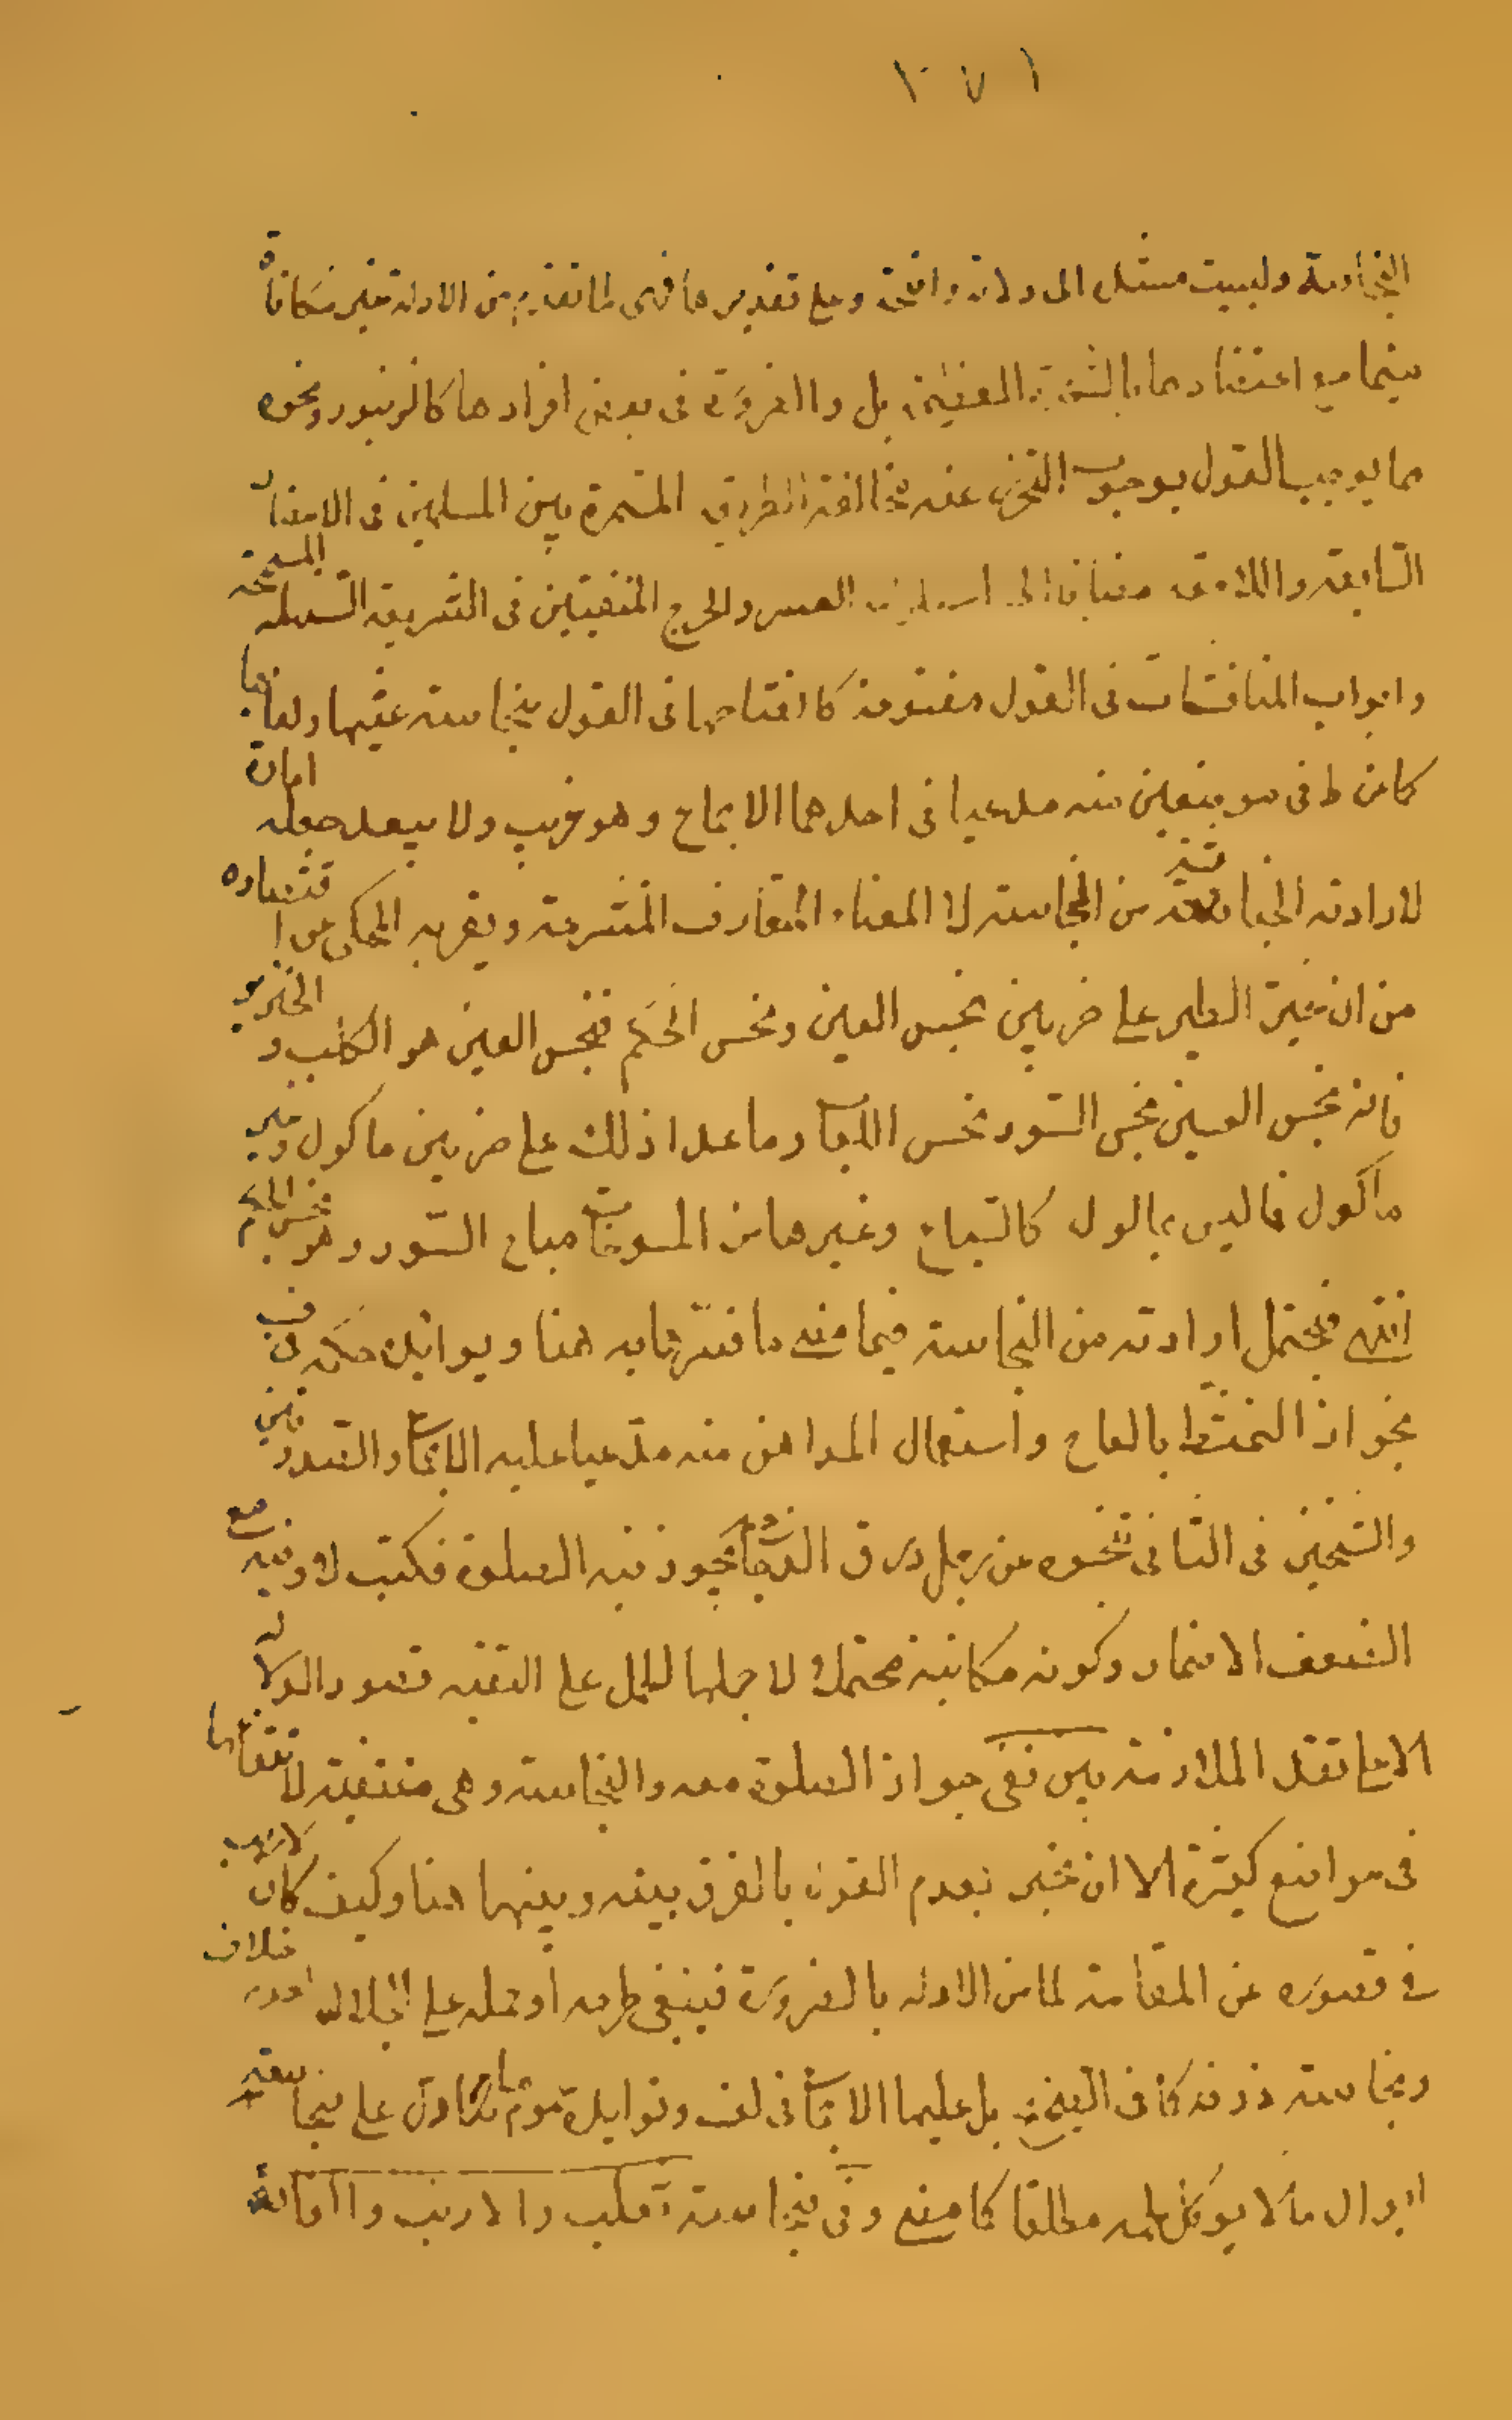 ١٧١
النجاسة وليست مستلزمة واضحة وعلى تقديرها فهى لما تقدم من الادلة غير مكافاة
سيما مع اعتضادها بالشهرة العظيمة بل والضرورة فى بعض افرادها كالزنبور ونحوه
مما يوجب القول بوجوب التحرز عنه مخالفة الطريقة المستمرة بين المسلمين فى الاعصار
السابقة واللاحقة مضافا الى استلزام العسر والحرج المنفيتين فى الشريعة السهلة السمحة
وابواب المناقشات فى القول مفتوحة كانفتاحها فى القول بنجاسة عينها ولعابها
كما عن ط فى موضعين منه مدعيا فى احدهما الاجماع وهو غريب ولا يبعد جعله امارة
لارادته الخباثة من النجاسة لا المعناه المتعارف المتشرعة ويقربه المحكى عن اقتصاده
من ان غير الطير على ضربين نجس العين ونجس الحكم فنجس العين هو الكلب والخنزير
فانه نجس العين نجس السور نجس اللعاب وما عدا ذلك على ضربين ماكول وغير
ماكول فما ليس بماكول كالسباع وغيرها من المسوخات مباح السور وهو نجس الحكم
انتهى فيحتمل ارادته من النجاسة فيما مضى ما فسرها به هنا ويؤيده حكمه فى ف
بجواز التمشط بالعاج واستعمال المداهن منه مدعيا عليه الاجماع والصدوقين
والشيخين فى الثانى نحوه عن رجل ذرق الدجاج يجوز فيه الصلوة فكتب لا وفيه مع
الضعف الاضمار وكونه مكاتبة محتملة لاجلها للحمل على التقية قصور الدلالة
الا على تقدير الملازمة بين نفى جواز الصلوة معه والنجاسة وهى منتفية لانتفائها
فى مواضع كثيرة الا ان يجبر بعدم القول بالفرق بينه وبينها هنا وكيف كان لا ريب
فى قصوره عن المقاومة لما من الادلة بالضرورة فينبغى طرحه او حمله على الجلال
ونجاسة ذرقه كما فى التنقيح بل عليها الاجماع فى لف ويؤيده عموم مادل على نجاسة
ابوال مالا يوكل لحمه مطلقا كما مضى وفى نجاسة الثعلب والارنب والفارة